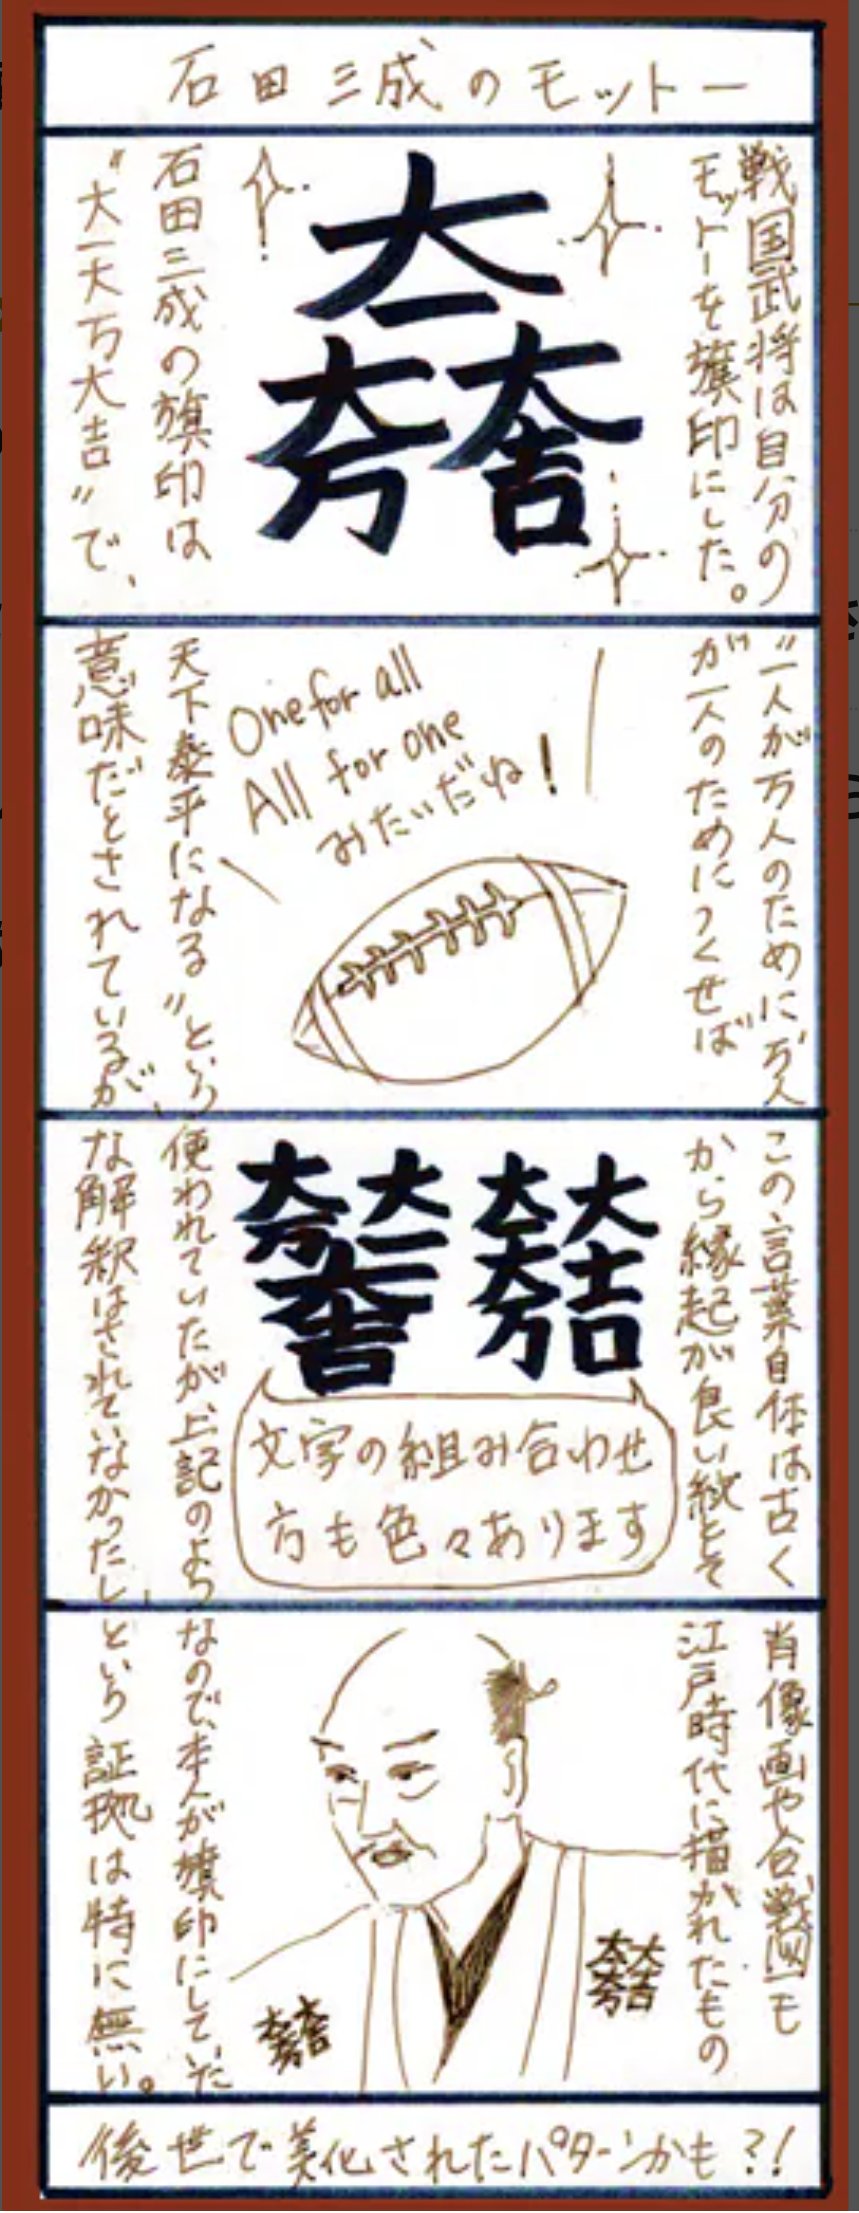 石田三成のモットー
戦国武将は自分の
モットーを旗印にした。
大一
大万大吉
石田三成の旗印は
"大一大万大吉"で、
"一人が万人のために、万人
が一人のためにつくせば
One for all
All for one
みたいだね!
天下泰平になる"という
意味だとされているが、
この言葉自体は古く
から縁起が良い紋として
大吉
大一大万
大一
大万
大吉
文字の組み合わせ
方も色々あります
使われていたが、上記のよう
な解釈はされていなかったし、
肖像画や合戦図も
江戸時代に描かれたもの
大一大吉
大万
大一大吉
大万
なので、本人が旗印にしていた
という証拠は特に無い。
後世で美化されたパターンかも?!